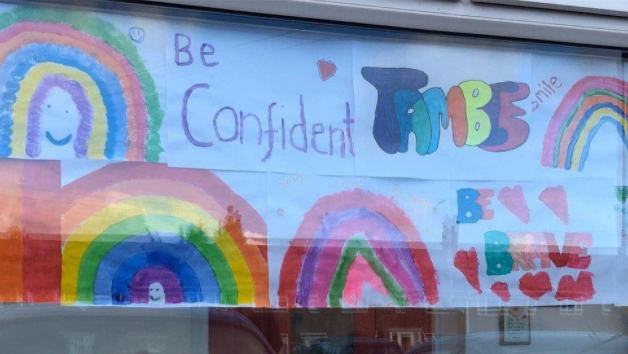 Be
Confident
TAMBE
smile
BE
BRAVE